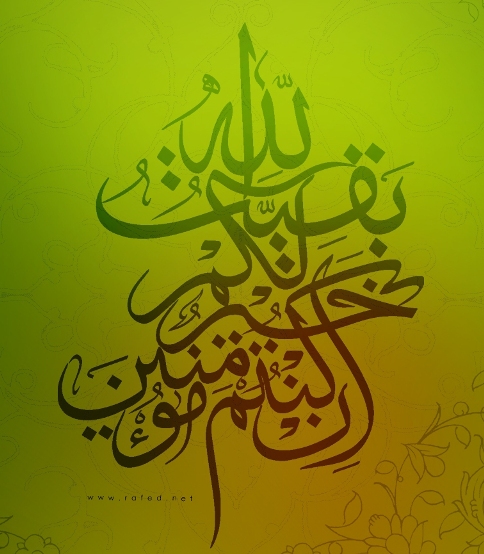 بقيت الله
خير لكم
إن كنتم مؤمنين
www.rafed.net